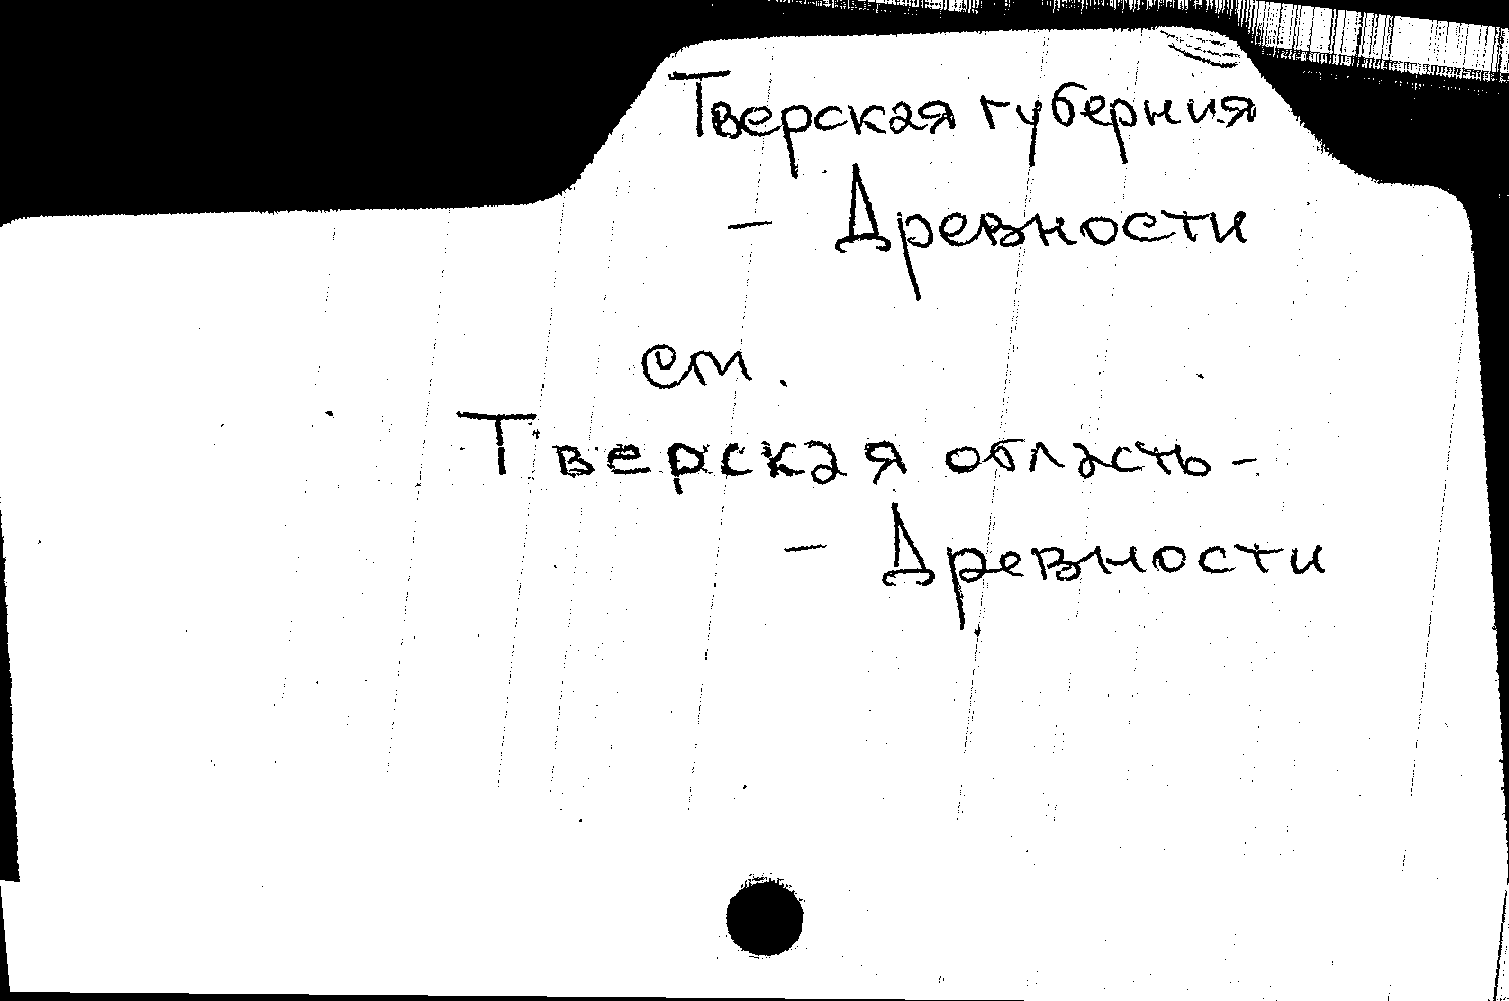 Тверская губерния
– Древности
см.
Тверская область –
– Древности